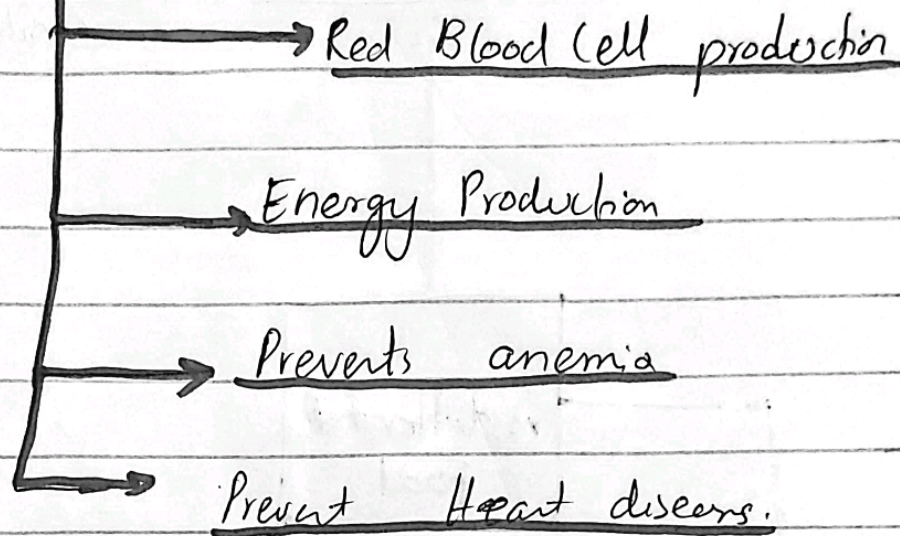 Red Blood Cell production
Energy Production
Prevents anemia
Prevent Heart diseens.